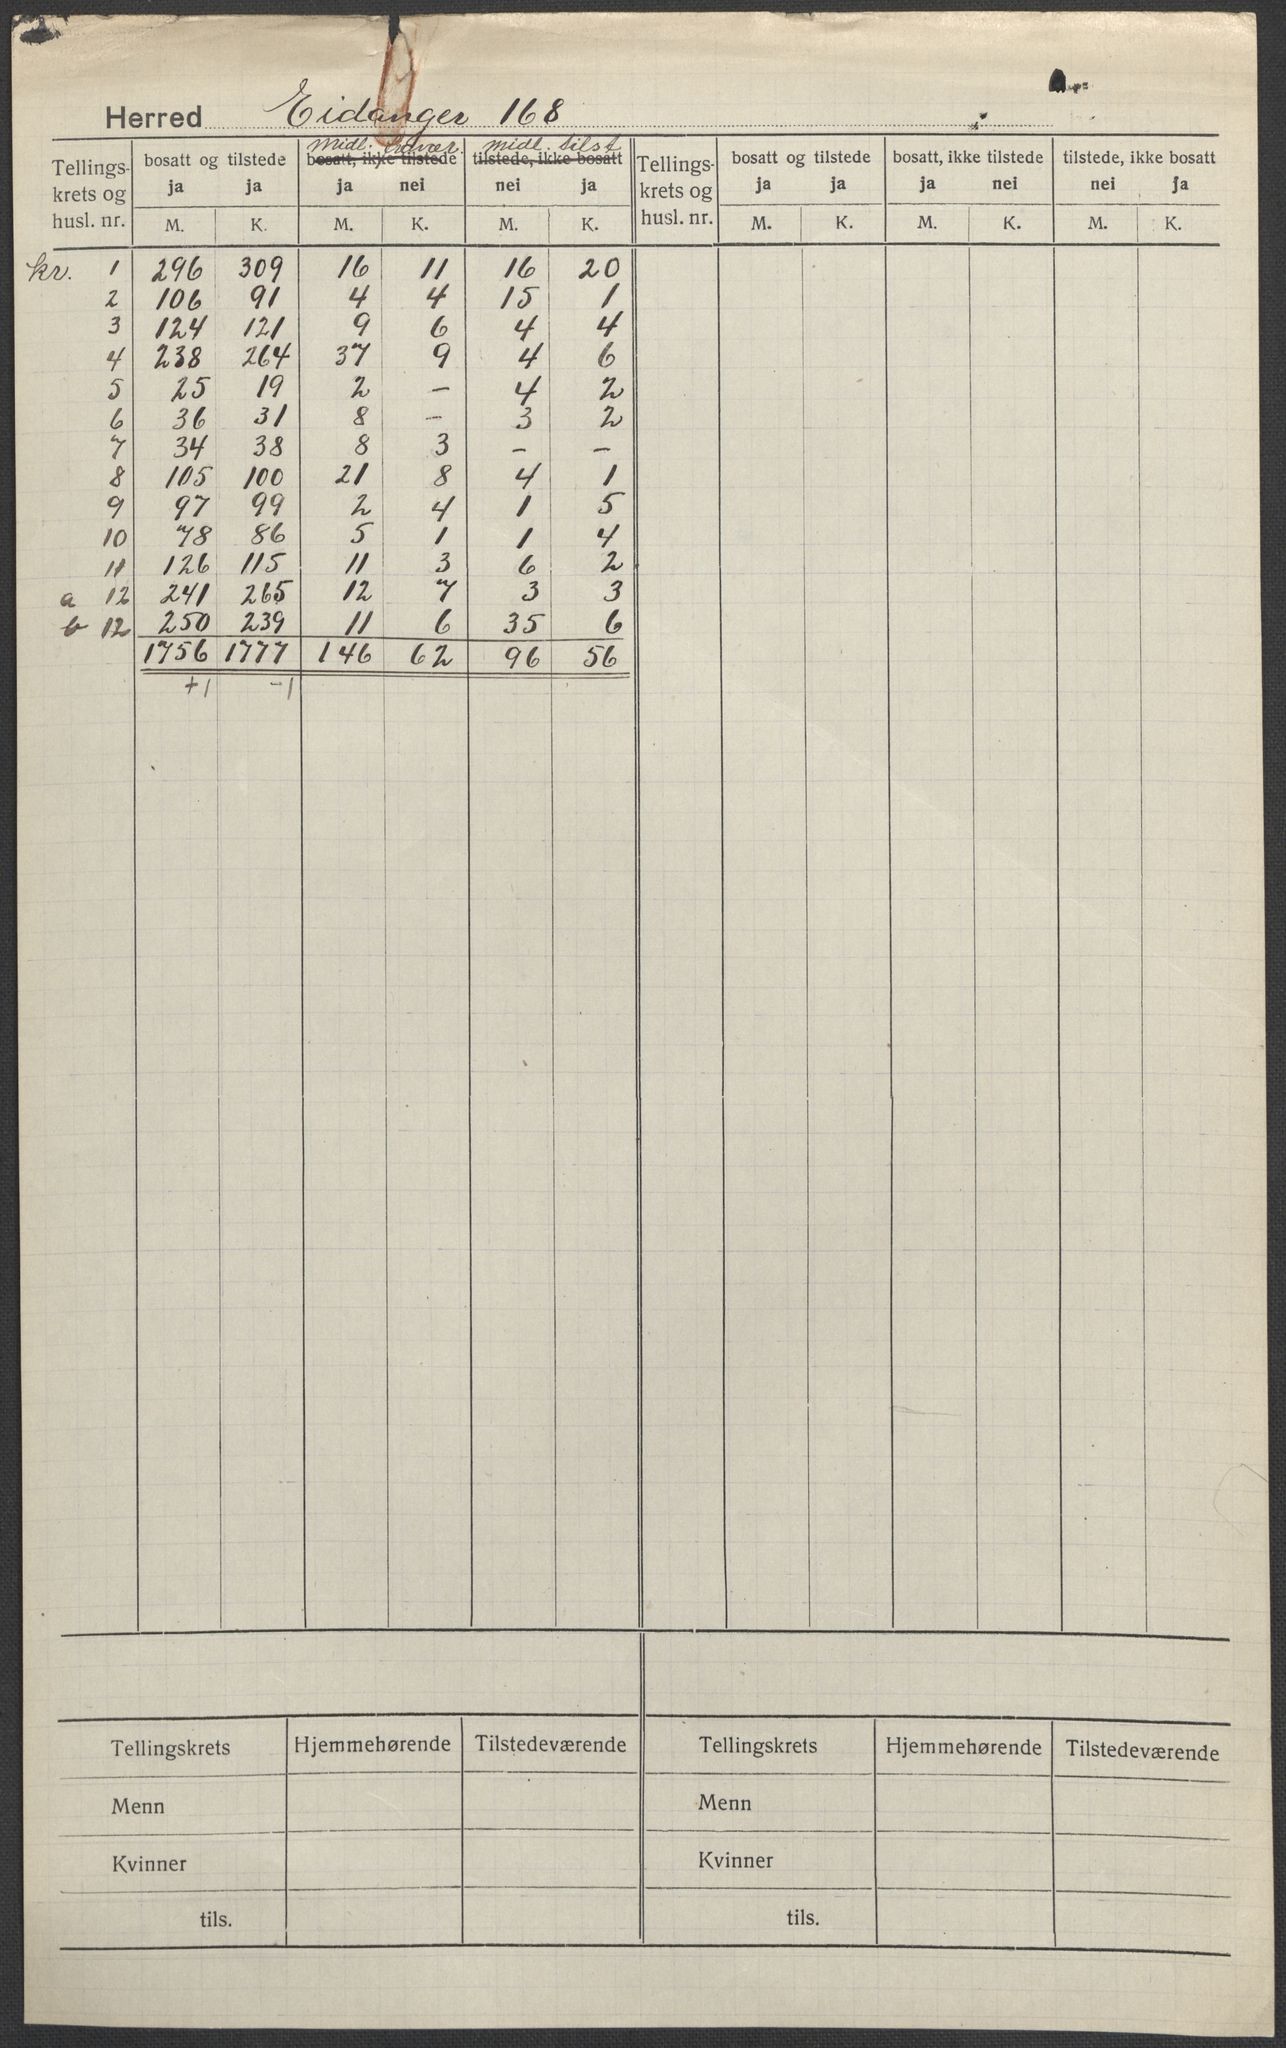 Herred Eidanger 168
Tellings-krets og husl. nr. | bosatt og tilstede | midl. fravær. bosatt, ikke tilstede | midl. tilst tilstede, ikke bosatt | Tellings-krets og husl. nr. | bosatt og tilstede | bosatt, ikke tilstede | tilstede, ikke bosatt
ja ja ja nei nei ja ja ja ja nei nei ja
M. K. M. K. M. K. M. K. M. K. M. K.
kr. 1 296 309 16 11 16 20
2 106 91 4 4 15 1
3 124 121 9 6 4 4
4 238 264 37 9 4 6
5 25 19 2 – 4 2
6 36 31 8 – 3 2
7 34 38 8 3 – –
8 105 100 21 8 4 1
9 97 99 2 4 1 5
10 78 86 5 1 1 4
11 126 115 11 3 6 2
a 12 241 265 12 7 3 3
b 12 250 239 11 6 35 6
1756 1777 146 62 96 56
+1 -1
Tellingskrets Hjemmehørende Tilstedeværende Tellingskrets Hjemmehørende Tilstedeværende
Menn Menn
Kvinner Kvinner
tils. tils.